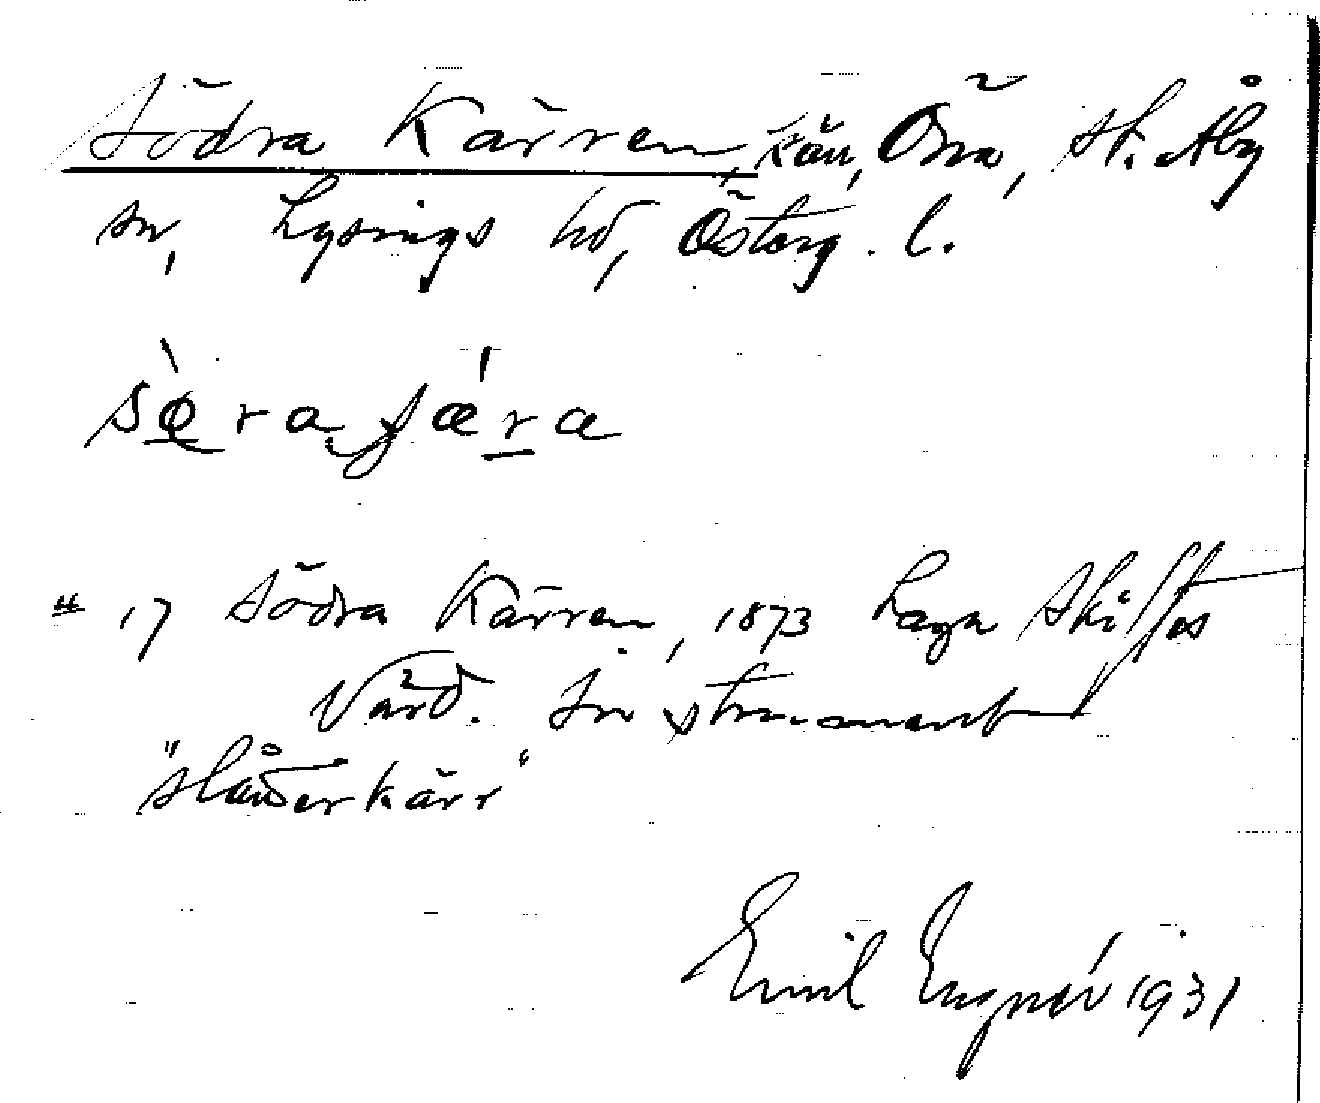 Södra Kärren, kärr, Öna, St. Åby
sn, Lysings hd, Österg. l.
# 17 Södra Kärren, 1873 Laga Skiftes
Värd. Instrument
"slåtterkärr"
Emil Engnér 1931